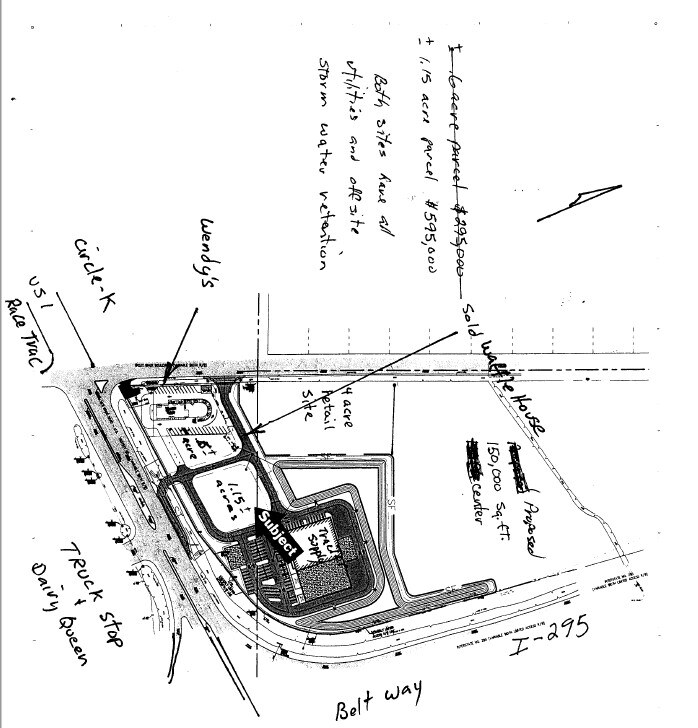 ± .6 acre parcel $295,000
± 1.15 acre parcel $595,000
Both sites have all
utilities and offsite
storm water retention
Wendy's
Circle-K
US 1
Race Trac
Sold Waffle House
4 acre
retail
site
.6±
acre
1.15±
acres
Subject
Tractor
Supply
Proposed
150,000 Sq.Ft.
center
SF
TRUCK STOP
+
Dairy Queen
I-295
Belt way